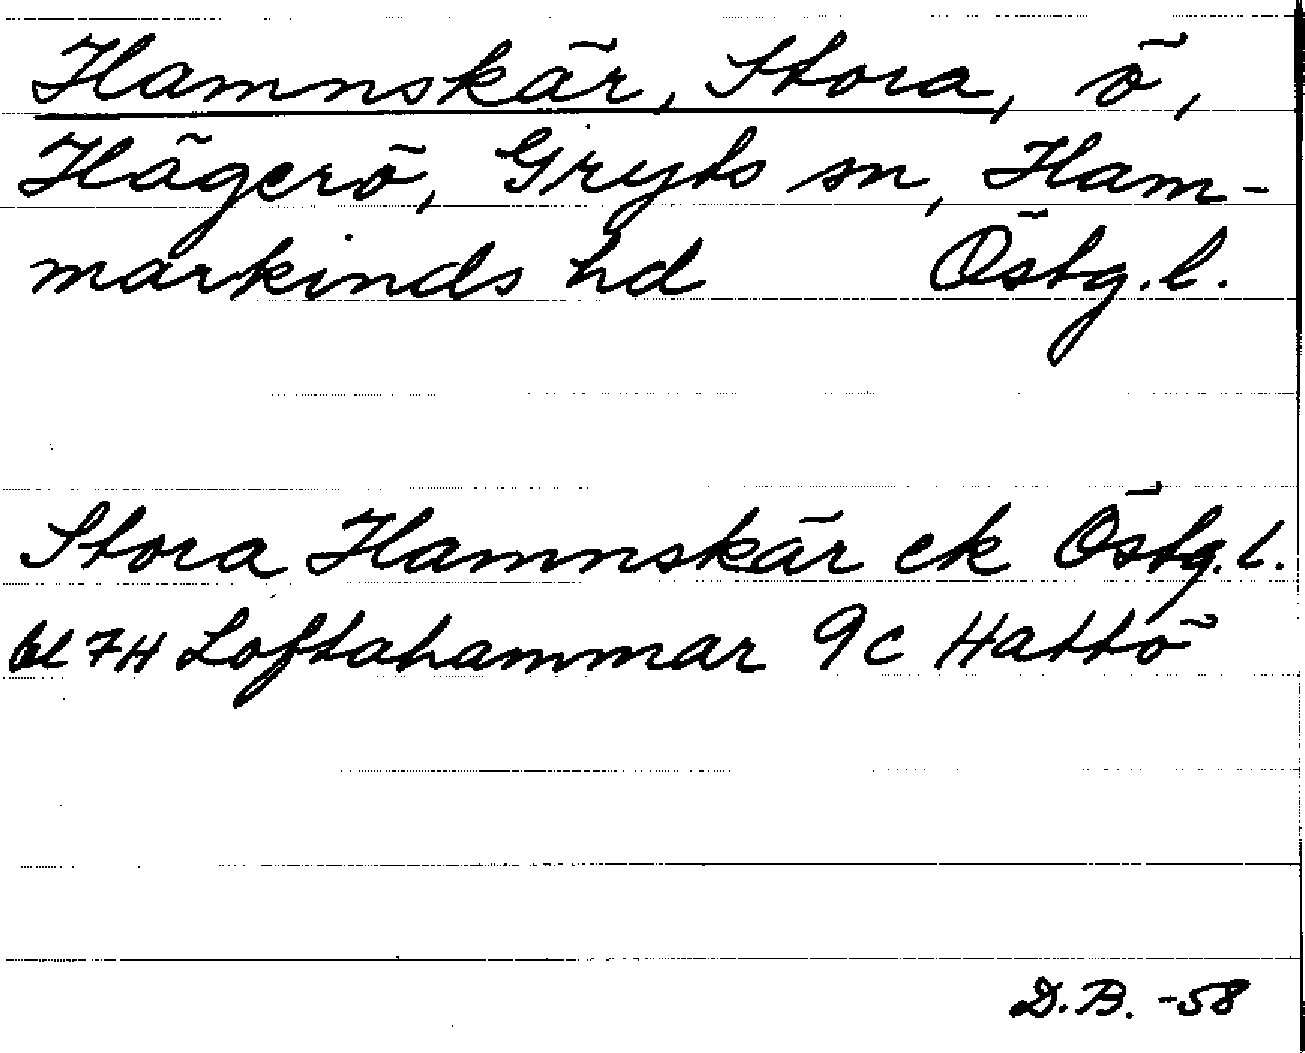 Hamnskär, Stora, ö,
Hägerö, Gryts sn, Ham-
markinds hd Östg.l.
Stora Hamnskär ek Östg.l.
bl 7H Loftahammar 9c Hattö
D.B. -58